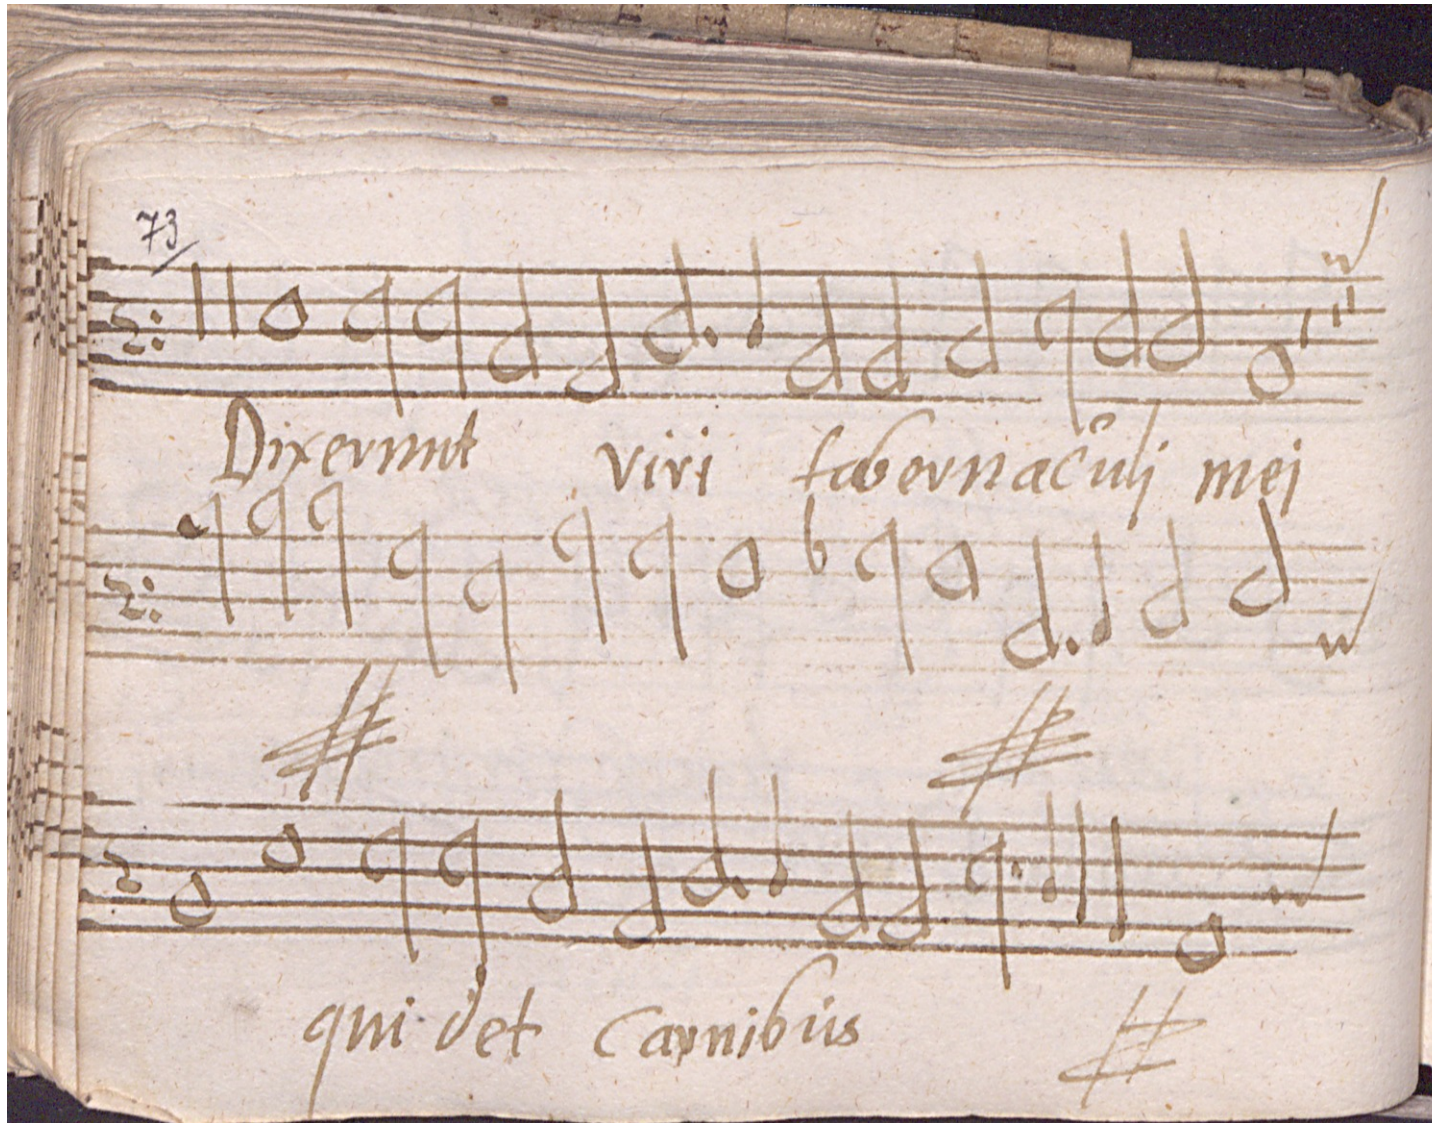 73
Dixerunt viri tabernaculj mej
qui det Carnibus